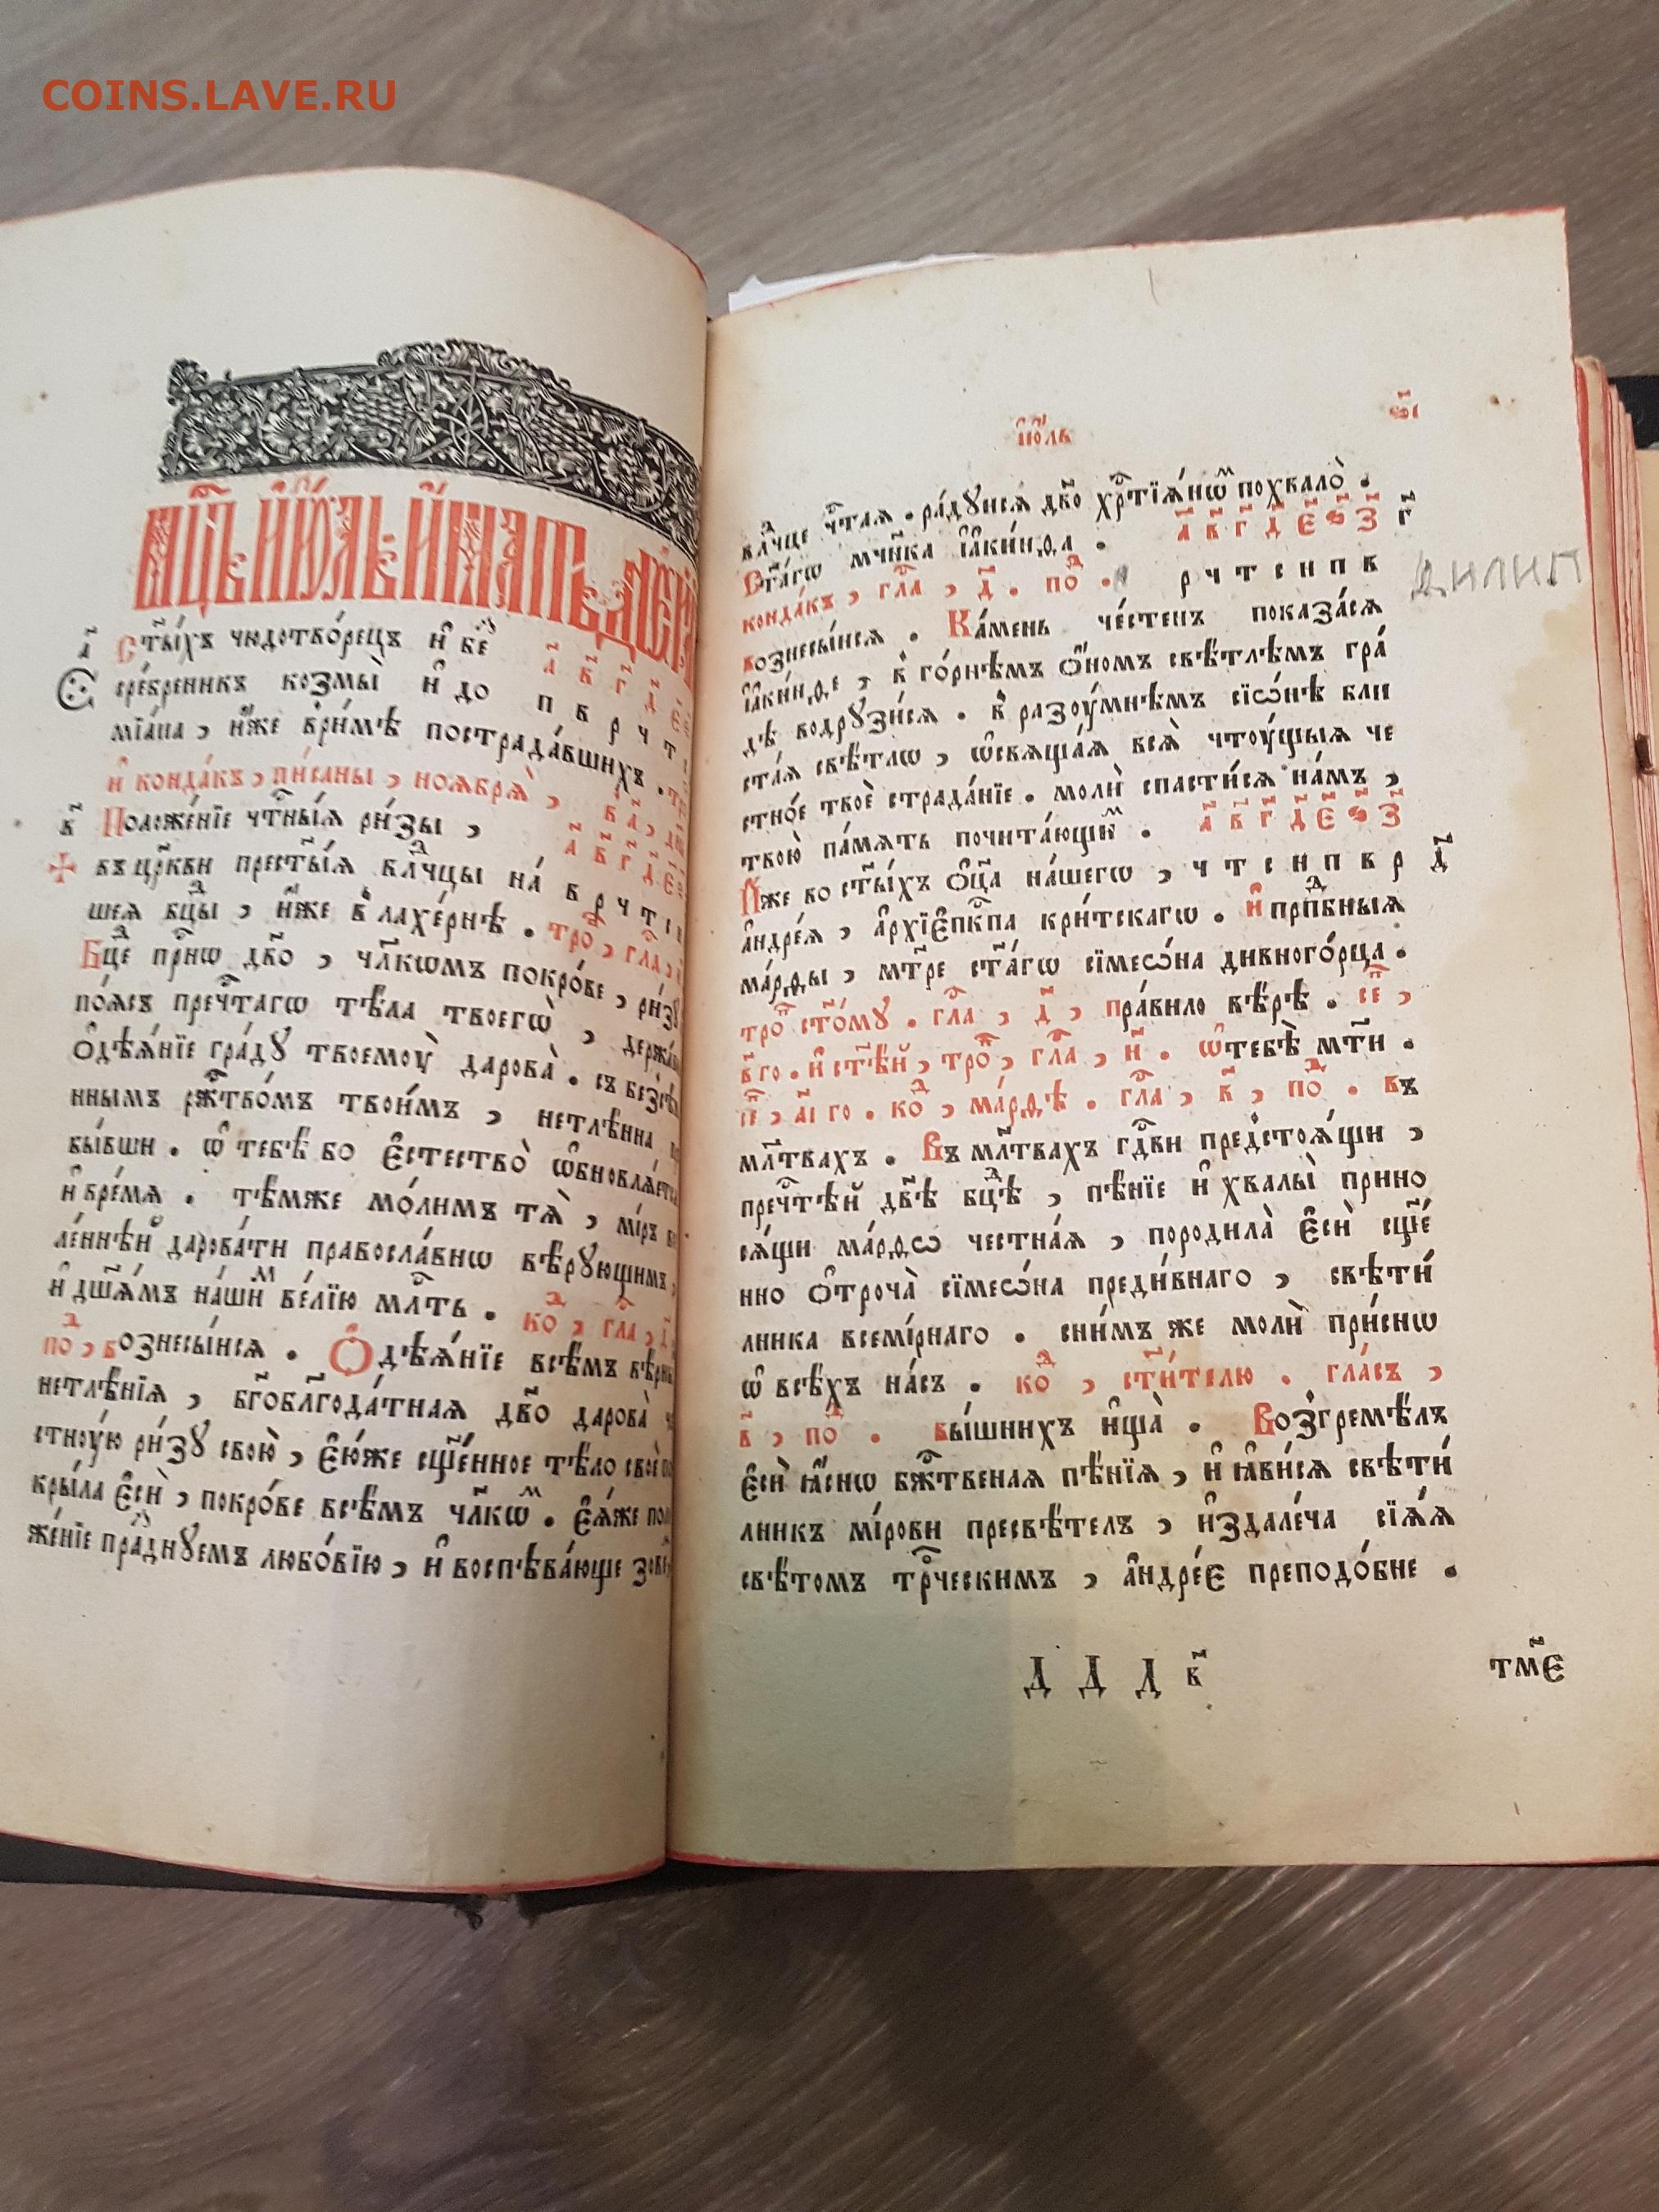 COINS.LAVE.RU
а҃ Ст҃ы́хъ чюдотво́рецъ и҆ бе
сре́бреникъ козмы̀ и҆ до п в р ч т
мїа́на , и҆́же в ри́мѣ пострада́вшихъ .
и҆ конда́къ , пи́саны , ноѧбрѧ̀ ,
в҃ Положе́нїе чтⷭ҇ны́ѧ ри́зы ,
въ цр҃кви прест҃ы́ѧ влⷣчцы на́ в р ч т
шеѧ бцⷣы , и҆́же в лахе́рнѣ . тро , гла ,
Бцⷣе при́снѡ дв҃о , чл҃кѡмъ покро́ве , ри́зꙋ
по́ѧсъ преч҃тагѡ тѣ́ла твоегѡ̀ ,
Ѻ҆дѣѧ́нїе гра́дꙋ твоемоу̀ дарова̀ .
ннымъ рж҃тво́мъ твои́мъ , нетлѣ́нна
бы́вши . ѡ҆ тебѣ́ бо є҆стество̀
и҆ вре́мѧ . тѣ́мже мо́лимъ тѧ̀ , ми́ръ
ле́ннѣй дарова́ти правосла́внѡ вѣ́рꙋющимъ ,
и҆ дш҃а́мъ на́шиⷨ ве́лїю млⷭ҇ть . ко , гла ,
поⷣ , вознесы́йсѧ . Ѻ҆дѣѧ́нїе всѣ́мъ
нетлѣ́нїѧ , бг҃обл҃года́тнаѧ дв҃о дарова̀
стноу́ю ри́зꙋ свою̀ , є҆ю́же сщ҃е́нное тѣ́ло своѐ
кры́ла є҆сѝ , покро́ве всѣ́мъ чл҃кѡⷨ . є҆ѧ́же
же́нїе пра́днꙋемъ любо́вїю , и҆ воспѣва́юще
і҆ю́ль ѕ҃і
влⷣчце чтⷭ҇аѧ . ра́дꙋисѧ дв҃о хрⷭ҇тїѧ́нѡⷨ похвало̀ .
а҃ в҃ г҃ д҃ є҃ ѕ҃ з҃ г҃
Ст҃а́гѡ мч҃нка і҆аки́нѳа . р ч т с н п в
конда́къ , гла , д҃ . поⷣ .
дилип
вознесы́йсѧ . Ка́мень че́стенъ показа́сѧ
і҆аки́нѳе , в го́рнѣмъ ѻ҆́номъ свѣ́тлѣмъ гра́
дѣ водрꙋзи́сѧ . в разоу́мнѣмъ сїѡ́нѣ бли
ста́ѧ свѣ́тлѡ , ѡ҆свѧща́ѧ всѧ̀ чтоу́щыѧ че
стно́е твоѐ страда́нїе . молѝ спасти́сѧ на́мъ ,
твою̀ па́мѧть почита́ющиⷨ . а҃ в҃ г҃ д҃ є҃ ѕ҃ з҃
И҆́же во ст҃ы́хъ ѻ҆ц҃а на́шегѡ , ч т с н п в р д҃
а҆ндре́ѧ , а҆рхїє҆пкⷭ҇па кри́тскагѡ . и҆ прпⷣбныѧ
ма́рѳы , мт҃ре ст҃а́гѡ сїмеѡ́на дивного́рца .
тро ст҃о́мꙋ . гла , д҃ , пра́вило вѣ́рѣ .
в҃го . и҆ ст҃ѣ́й , тро , гла , и҃ . ѿ тебѣ̀ мт҃и .
коⷣ , ма́рѳѣ . гла , в҃ , поⷣ . въ
мл҃твахъ . Въ мл҃твахъ гдⷭ҇ви предстоѧ́щи ,
пречⷭ҇тѣй дв҃ѣ бцⷣѣ , пѣ́нїе и҆ хвалы̀ прино
сѧ́щи ма́рѳѡ честна́ѧ , породила̀ є҆сѝ сщ҃е́
нно ѻ҆троча̀ сїмеѡ́на преди́внаго , свѣти́
лника всемі́рнаго . сни́мъ же молѝ при́снѡ
ѡ҆ всѣ́хъ на́съ . коⷣ , ст҃и́телю . гла́съ ,
в҃ , поⷣ . вы́шнихъ и҆ща̀ . Возгремѣ́лъ
є҆сѝ ꙗ҆́снѡ бжⷭ҇твенаѧ пѣ́нїѧ , и҆ ꙗ҆ви́сѧ свѣти́
лникъ мі́рови пресвѣ́телъ , и҆здале́ча сїѧ́ѧ
свѣ́томъ трⷪ҇ческимъ , а҆ндре́є преподо́бне .
Д Д Д в҃ тм҃є